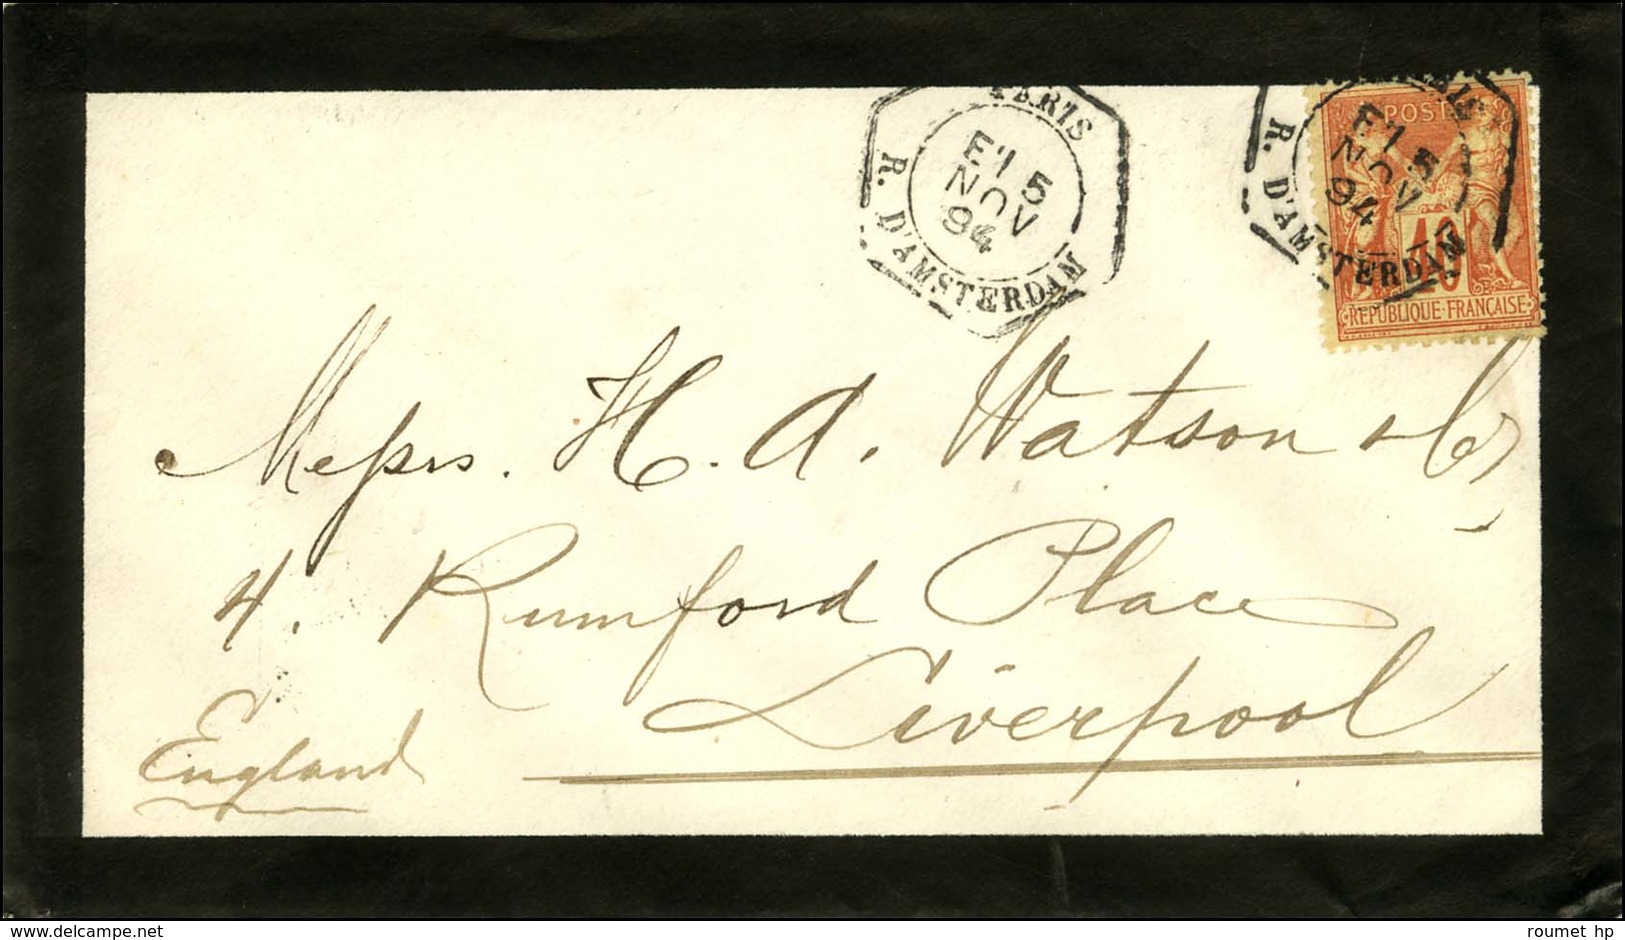 PARIS
E1 5
NOV
94
R. D'AMSTERDAM
PARIS
E1 5
NOV
94
R. D'AMSTERDAM
POSTES
40
REPUBLIQUE·FRANÇAISE
Messrs. H. A. Watson & Co
4. Rumford Place
Liverpool
England
www.delcampe.net
roumet hp